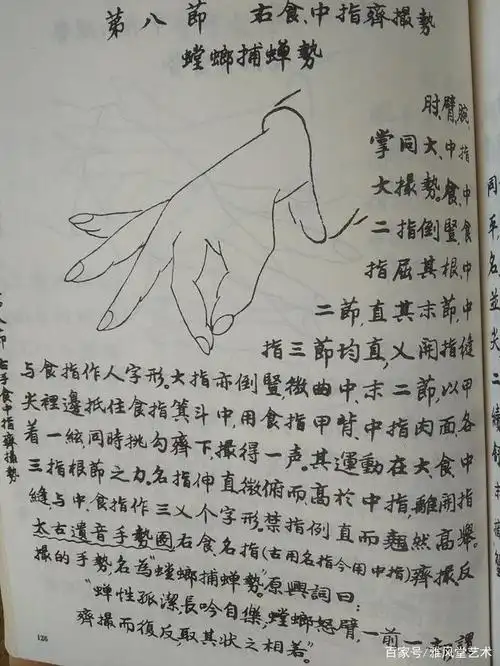 第八節　右食、中指齊撮勢
螳螂捕蟬勢
肘、臂、腕、
掌同大、中指
大撮勢。食、中
二指倒豎，食
指屈其根、中
二節，直其末節，中
指三節均直，乂開指縫
與食指作人字形。大指亦倒豎微曲中、末二節，以甲
尖裡邊抵住食指箕斗中，用食指甲背、中指肉面，各
着一絃，同時挑勾齊下，撮得一声。其運動在大、食、中
三指根節之力。名指伸直微俯而高於中指，離開指
縫，与中、食指作三乂个字形。禁指例直而翹然高舉。
太古遺音手勢圖右食名指(古用名指今用中指)齊撮反
撮的手勢，名為“螳螂捕蟬勢”。原興詞曰：
“蟬性孤潔長吟自樂，螳螂怒臂，一前一
齊撮而復反，取其状之相若”。
126
右手食中指齊撮勢
百家号/雅风堂艺术